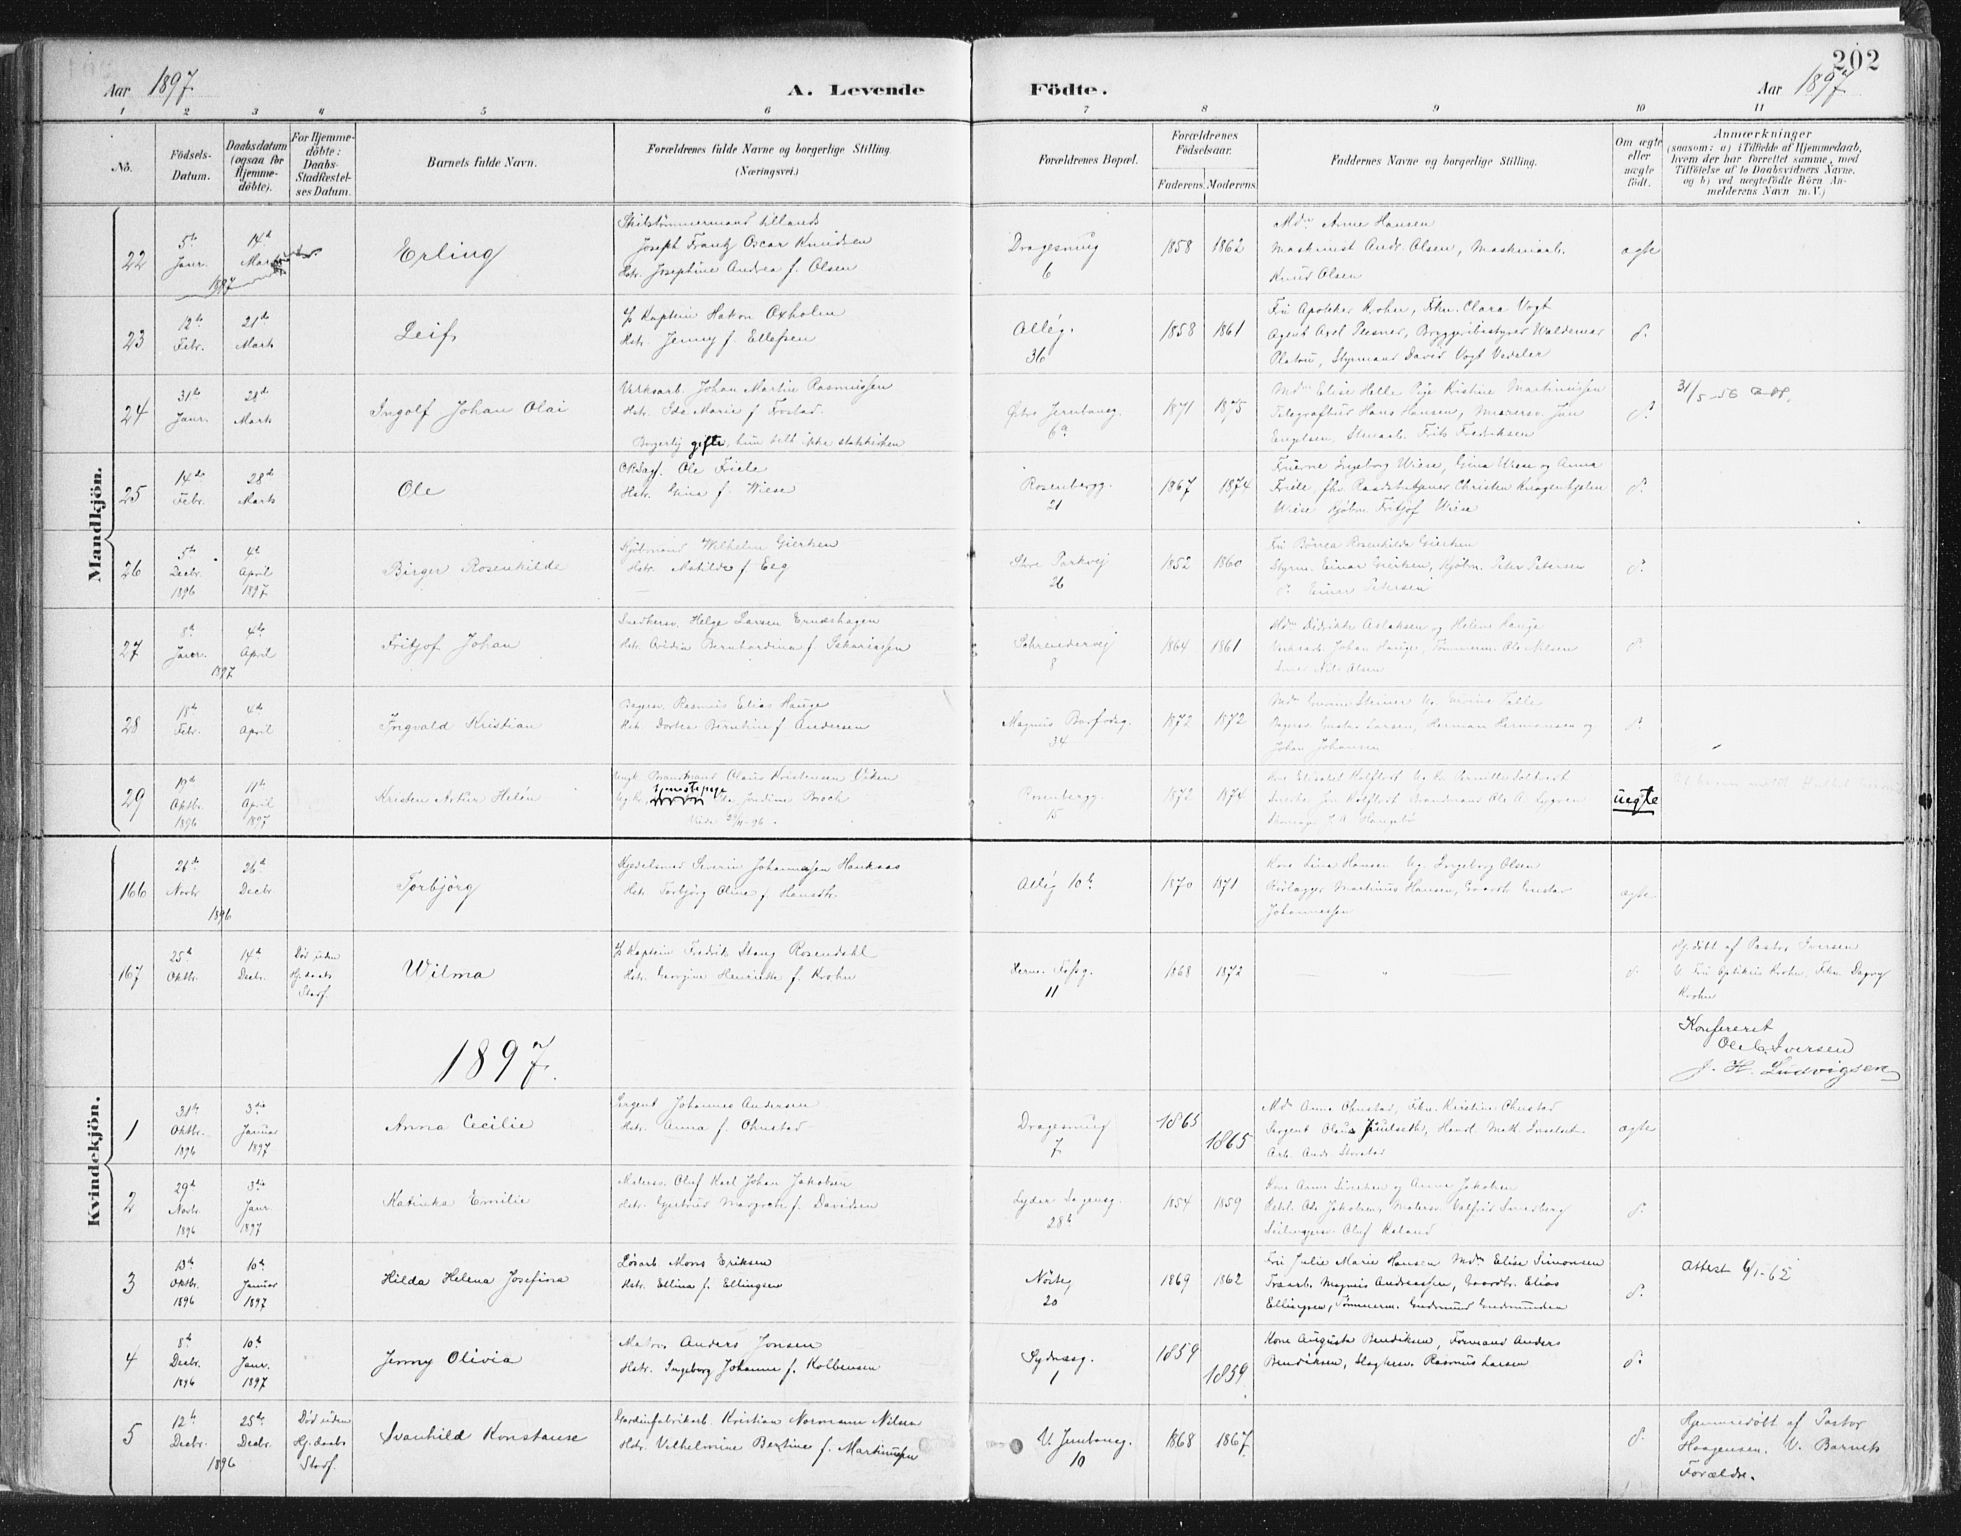 202
Aar 1897.
A. Levende Födte.
Aar 1897
1 2 3 4 5 6 7 8 9 10 11
No.
Födsels-Datum.
Daabsdatum (ogsaa for Hjemme-döbte).
For Hjemme-döbte: Daabs-Stadfæstel-ses Datum.
Barnets fulde Navn.
Forældrenes fulde Navne og borgerlige Stilling.
(Næringsvei.)
Forældrenes Bopæl.
Forældrenes Födselsaar.
Faderens. Moderens.
Faddernes Navne og borgerlige Stilling.
Om ægte eller uægte födt.
Anmærkninger
(saasom: a) i Tilfælde af Hjemmedaab,
hvem der har forrettet samme, med
Tilföielse af to Daabsvidners Navne.
og b) ved uægtefödte Börn An-
melderens Navn m. V.)
Mandkjön.
22
5te Janr. 1897
14d Marts
Erling
Joseph Frantz Oscar Knudsen
Hstr. Josephine Andrea f. Olsen
Dragesmug
6
1858 1862
Mdm Anne Hansen
Maskinist Andr. Olsen, Maskinarb.
Knud Olsen
ægte
23
12te Febr.
21de Marts
Leif
Kaptein Hakon Oxholm
Hstr. Jenny f. Ellefsen
Allég.
36
1858 1861
Fru Apoteker Krohn, Frkn. Clara Vogt
Agent Axel Piesner, Bryggeribestyrer Waldemar
Platou, Styrmand David Vogt Vedeler
d.
24
31te Janr.
28d Marts
Ingolf Johan Olai
Verksarb. Johan Martin Rasmussen
Hstr. Ida Marie f. Frostad.
Borgerlig gifte, hun
Østre Jernbaneg.
6a
1871 1875
Mdm Elise Helle Pige Kristine Martinussen
Hans Hansen, Murersv. Jan
Engelsen, Frits Fredriksen
d.
31/5-56
25
14de Febr.
28d Marts
Ole
Ole Friele
Hstr. Gina f. Wiese
Rosenbergg.
21
1867 1874
Fruerne Ingeborg Wiese, Gina Wiese og Anna
Friele, fhv. Christen Knagenhjelm
Wiese Kjöbm. Fritjof Wiese
d.
26
5te Decbr. 1896
4de April 1897
Birger Rosenkilde
Kjöbmand Wilhelm Giertsen
Hstr. Matilde f. Eeg
Store Parkvej
26
1852 1860
Fru Börrea Rosenkilde Giertsen
Styrm. Einar Giertsen, Kjöbm. Peter Petersen
d. Einer Petersen
d.
27
8d Janr. 1897
4de April
Fritjof Johan
Snedkersv. Helge Larsen Erndshagen
Hstr. Ovidia Bernhardina f. Sakariassen
Schrøndervej
8
1864 1861
Mdm Didrikke Aslaksen og Helene Hauge
Verksarb. Johan Hauge, Tömmerm. Ole Nilsen
Nils Olsen
d.
28
18d Febr.
4de April
Ingvald Kristian
Bagersv. Rasmus Elias Hauge
Hstr. Dortea Berntine f. Andersen
Magnus Barfodsg.
34
1872 1872
Bagersv. Gustav Larsen, Herman Hermansen og
Johan Johansen
d.
29
19d Oktbr. 1896
11te April 1897
Kristen Artur Helén
Ungk. Brandmand Olaus Kristensen Viken
Tjenestepige Jordine Broch
Rosenbergg.
15
1872 1874
uægte
Kvindekjön.
166
26de Novbr 1896
26d Decbr
Torbjörg
Kjedelsmed Severin Johannesen Haukaas
Hstr. Torbjörg Oline f. Hansdtr.
Allég 10b
1870 1871
Kone Lina Hansen Pig. Ingeborg Olsen
Martinus Hansen, Gustav
Johannessen
ægte
167
25d Oktbr.
14d Decbr.
Död uden Hj.daabs Stadf.
Wilma
Kaptein Fredrik Stang Rosendahl
Hstr. Georgine Henriette f. Krohn
Herm. Fossg.
11
1868 1872
"
d.
Hj.döbt af Pastor Iversen
V. Fru Optikus Krohn, Frkn. Dagny
Krohn
1897.
Konfereret
Ole C. Iversen
J. H. Ludvigsen
1
31te Oktbr. 1896
3die Januar 1897
Anna Cecilie
Sergent Johannes Andersen
Hstr. Anna f. Ohnstad
Dragesmug
7
1865 1865
Mdm Anna Ohnstad, Frkn. Kristine Ohnstad
Sergent Olaus
Arb. Andr. Storstad
ægte
2
29d Novbr. 1896
3die Janr. 1897
Katinka Emilie
Malersv. Oluf Karl Johan Jakobsen
Hstr. Gjertrud Margrete f. Davidsen
Lyder Sagensg.
28b
1854 1859
Kone Anne og Anna Jakobsen
Ole Jakobsen, Malersv. Valfrid Smedberg
Oluf Roland
d.
3
13d Oktbr. 1896
10de Januar 1897
Hilda Helena Josefina
Lösarb. Mons Eriksen
Hstr. Ellina f. Ellingsen
Nöste,
20
1869 1862
Fru Julie Marie Hansen Mdm Elise Simonsen
Magnus Andreassen, Gaardbr. Elias
Ellingsen, Tömmerm. Gudmund Gudmundsen
d.
Attest 6/1-62
4
8d Decbr. 1896
10de Janr. 1897
Jenny Olivia
Matros Anders Jonsen
Hstr. Ingeborg Johanne f. Kolbensen
Sydnæsg.
1
1859 1859
Kone Augusta Bendiksen, Formand Anders
Bendiksen, Slagtersv. Rasmus Larsen
d.
5
12te Decbr. 1896
25de Decbr.
Död uden Hj.daabs Stadf.
Svanhild Konstanse
Gardinfabrikarb. Kristian Normann Nilsen
Hstr. Vilhelmine Bertine f. Martinussen
V. Jernbaneg.
10
1868 1867
d.
Hjemmedöbt af Pastor
Haagensen. V. Barnets
Forældre.